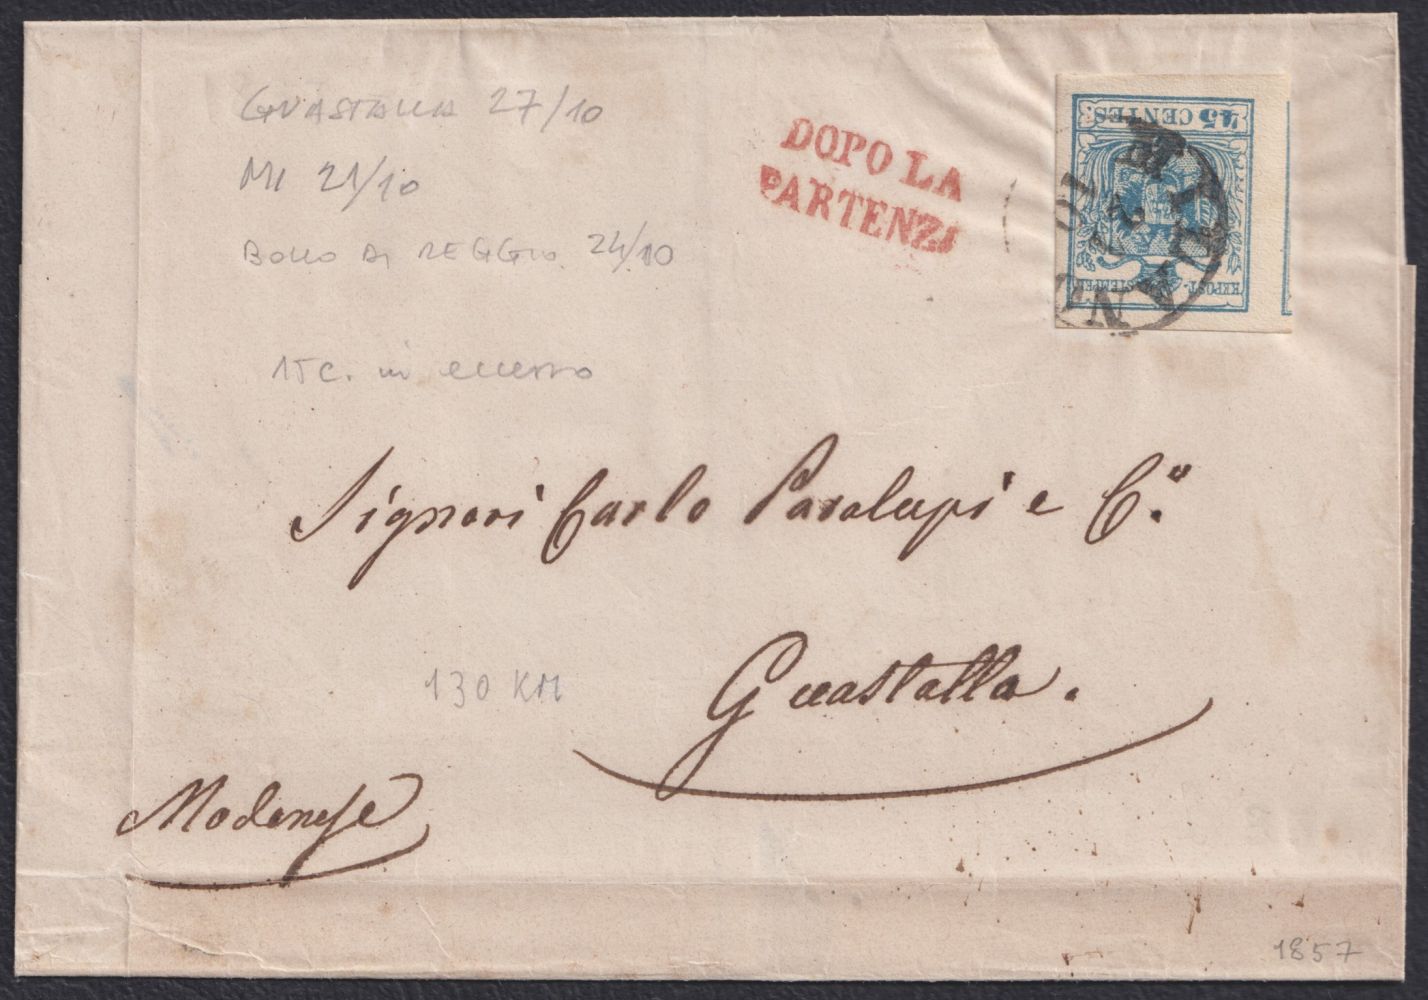 GUASTALLA 27/10
MI 21/10
BOLLO DI REGGIO 24/10
15 c. in eccesso
DOPO LA
PARTENZA
45 CENTES.
KKPOST-STEMPEL
MILANO
21
10
Signori Carlo Paralupi e C.a
Guastalla.
130 KM
Modenese
1857